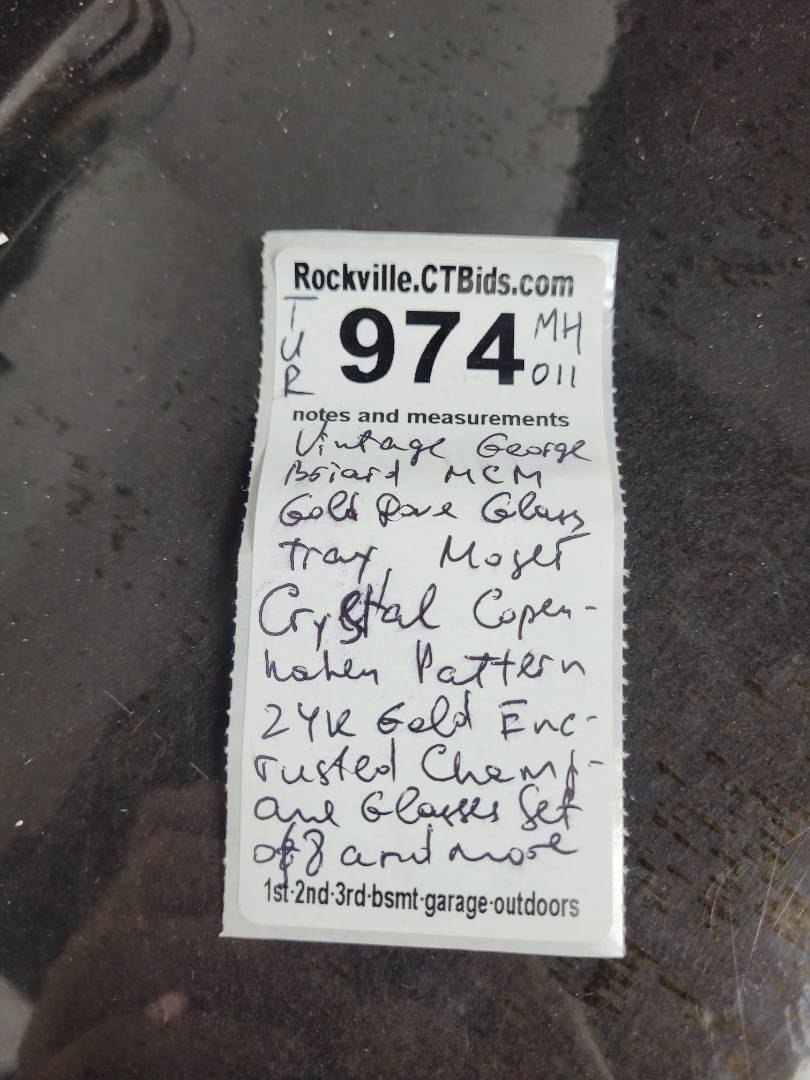 Rockville.CTBids.com
TUR 974 MH 011
notes and measurements
Vintage George
Briard MCM
Gold Dove Glass
Tray, Moser
Crystal Copen-
hahen Pattern
24K Gold Enc-
rusted Champ-
ane Glasses Set
of 8 and more
1st·2nd·3rd·bsmt·garage·outdoors